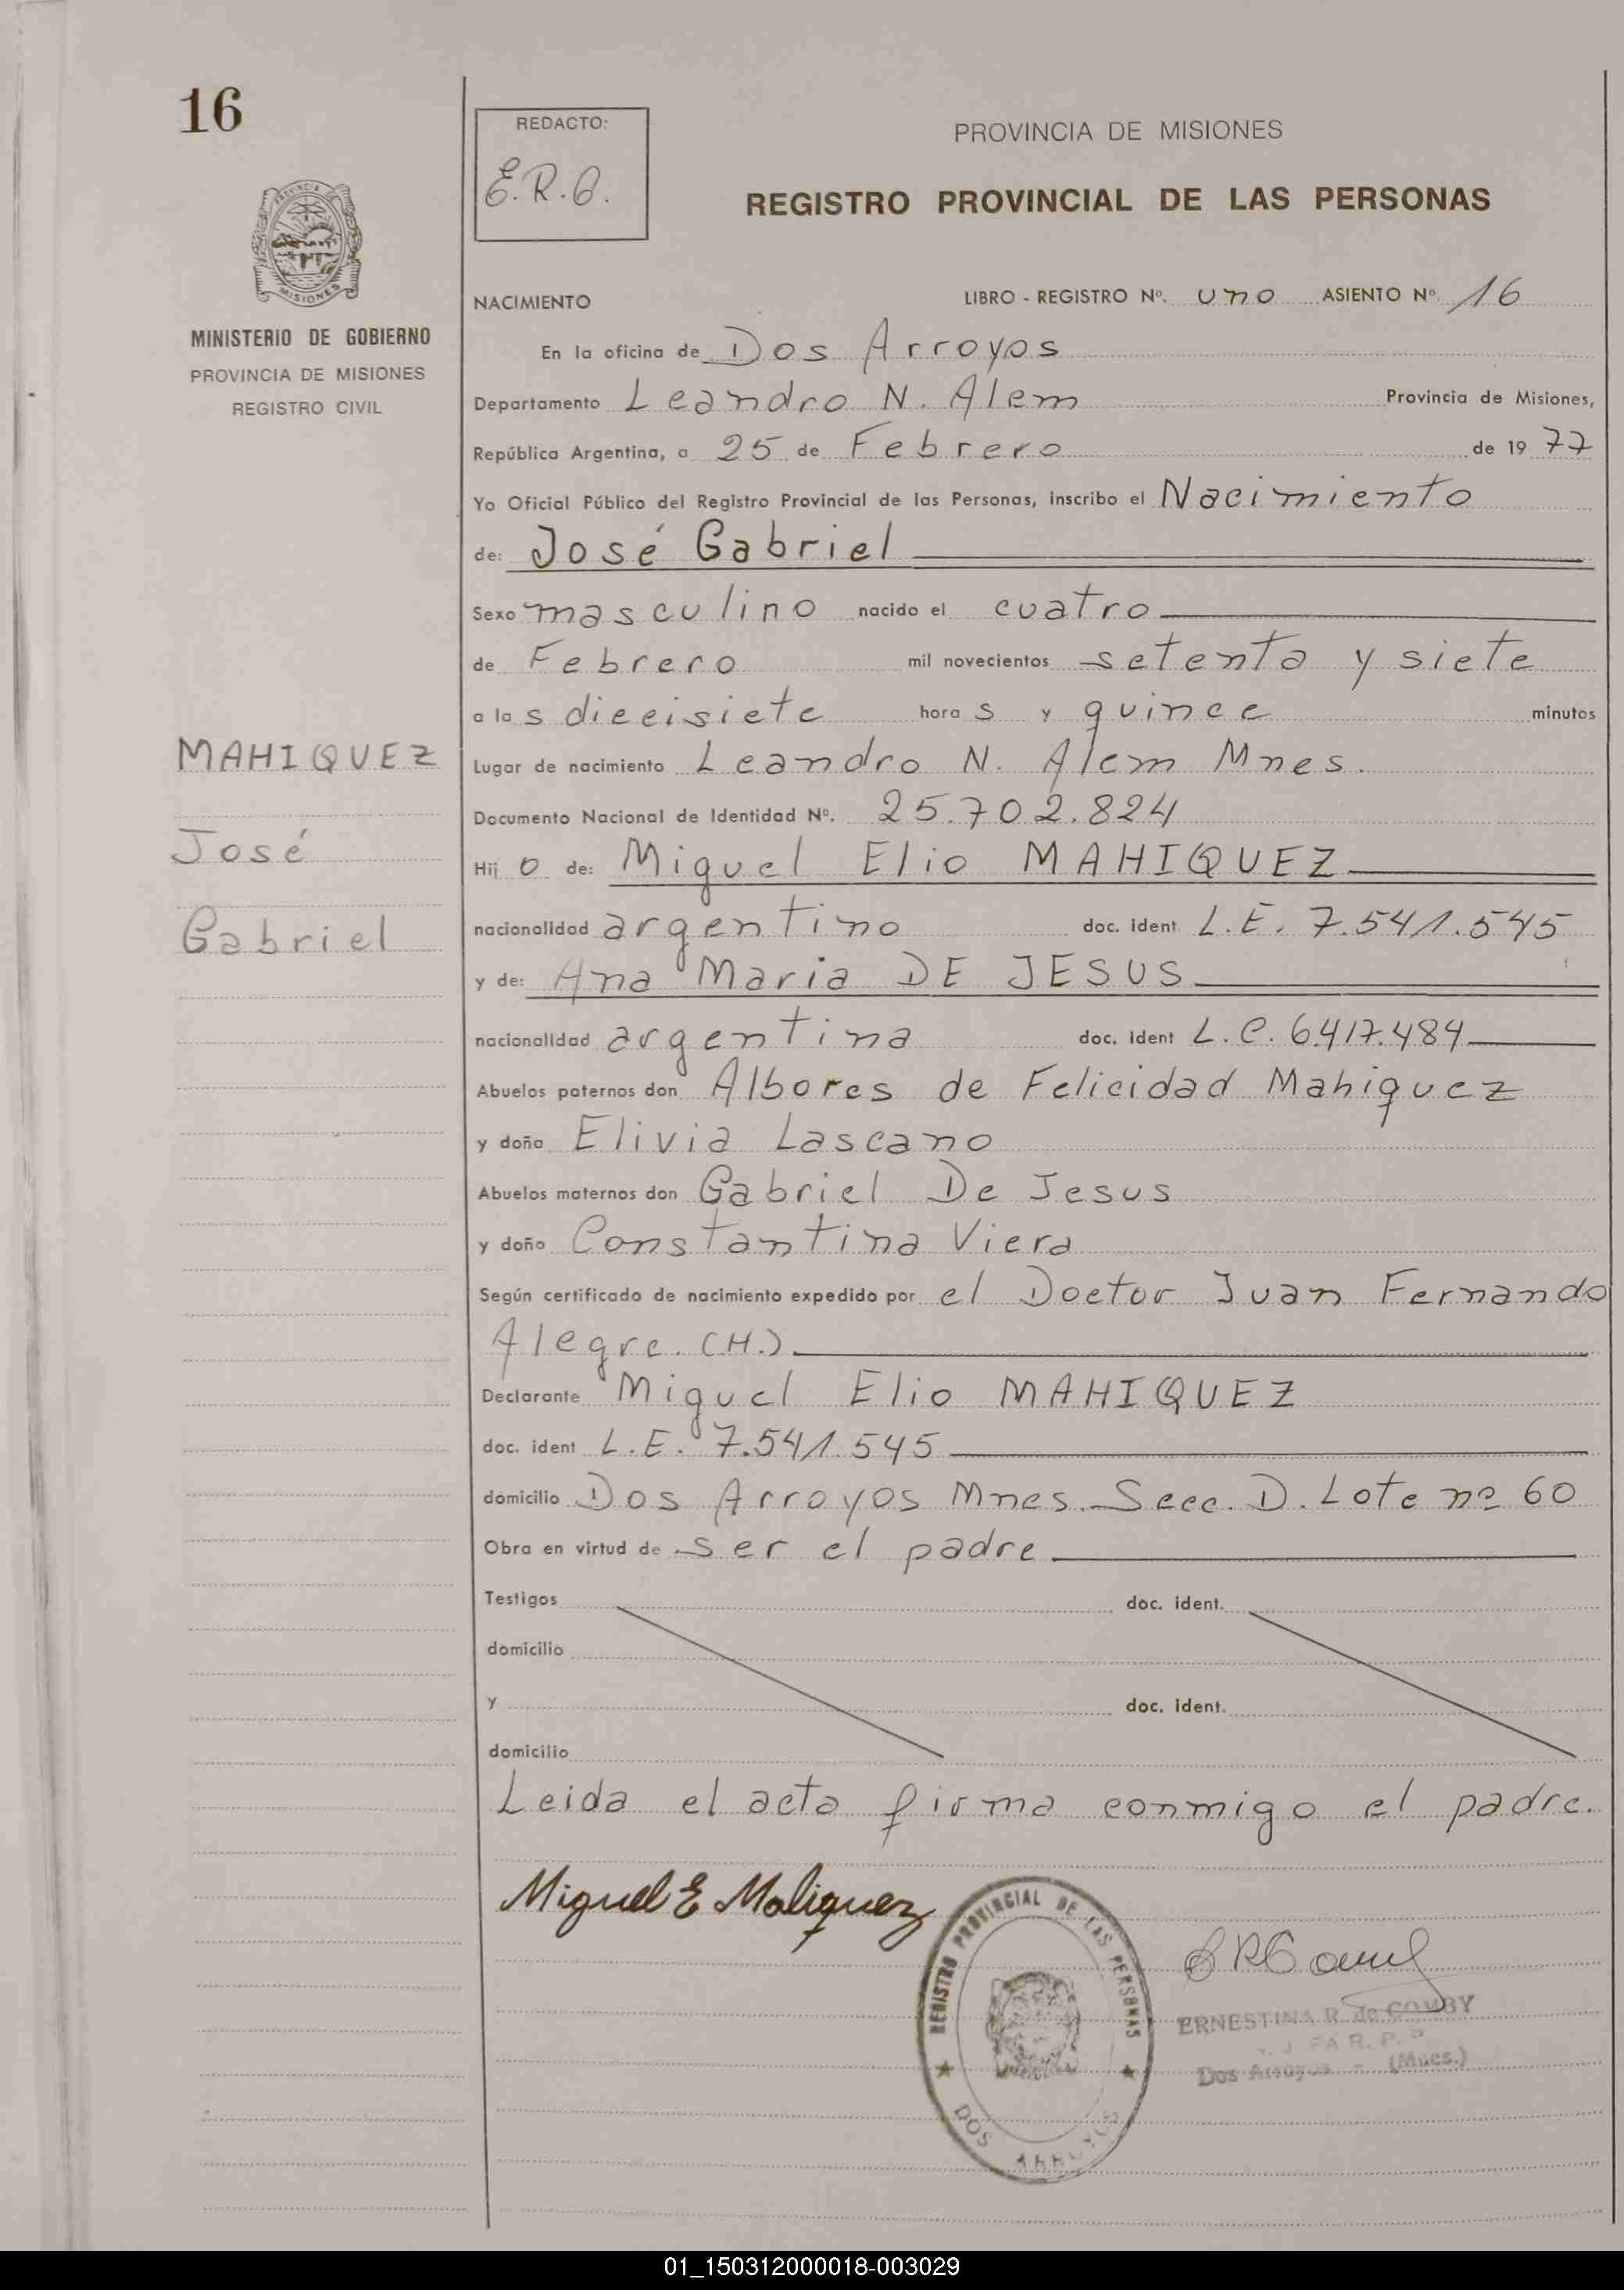 16
REDACTO:
E.R.G.
PROVINCIA DE MISIONES
REGISTRO PROVINCIAL DE LAS PERSONAS
MISIONES
MINISTERIO DE GOBIERNO
PROVINCIA DE MISIONES
REGISTRO CIVIL
NACIMIENTO LIBRO - REGISTRO Nº. uno ASIENTO Nº 16
En la oficina de Dos Arroyos
Departamento Leandro N. Alem Provincia de Misiones,
República Argentina, a 25 de Febrero de 19 77
Yo Oficial Público del Registro Provincial de las Personas, inscribo el Nacimiento
de: José Gabriel
Sexo masculino nacido el cuatro
de Febrero mil novecientos setenta y siete
a las diecisiete horas y quince minutos
MAHIQUEZ
José
Gabriel
Lugar de nacimiento Leandro N. Alem Mnes.
Documento Nacional de Identidad Nº. 25.702.824
Hijo de: Miguel Elio MAHIQUEZ
nacionalidad argentino doc. ident L.E. 7.541.545
y de: Ana Maria DE JESUS
nacionalidad argentina doc. ident L.C. 6.417.484
Abuelos paternos don Albores de Felicidad Mahiquez
y doña Elivia Lascano
Abuelos maternos don Gabriel De Jesus
y doña Constantina Viera
Según certificado de nacimiento expedido por el Doctor Juan Fernando
Alegre. (H.)
Declarante Miguel Elio MAHIQUEZ
doc. ident L.E. 7.541.545
domicilio Dos Arroyos Mnes. Secc. D. Lote nº 60
Obra en virtud de ser el padre
Testigos doc. ident.
domicilio
y doc. ident.
domicilio
Leida el acta firma conmigo el padre.
Miguel E Mahiquez
REGISTRO PROVINCIAL DE LAS PERSONAS
DOS ARROYOS
ERNESTINA R. de GOMBY
Dos Arroyos - (Mnes.)
01_150312000018-003029